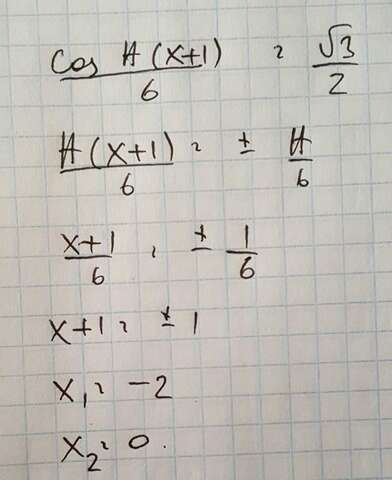 cos π(x+1)/6 = √3/2
π(x+1)/6 = ± π/6
x+1/6 = ± 1/6
x+1 = ± 1
x₁ = -2
x₂ = 0.